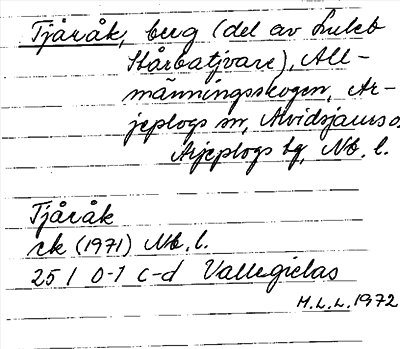 Tjåråk, berg (del av Luleb
Stårbatjvare), All-
männingsskogen, Ar-
jeplogs sn, Arvidsjaurs o.
Arjeplogs tg, Nb. l.
Tjåråk
rk (1971) Nb. l.
25 I 0-1 c-d Vallegielas
H.L.L. 1972